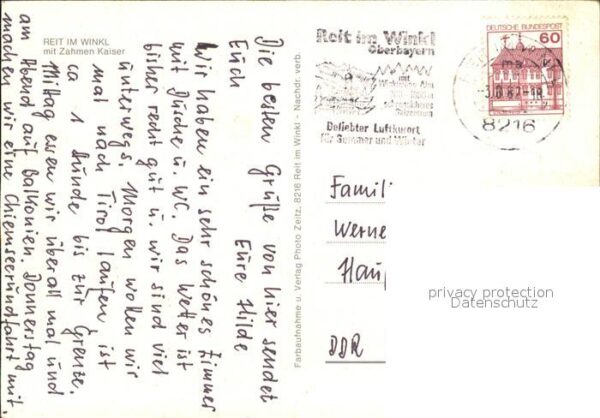 REIT IM WINKL
mit Zahmen Kaiser
Die besten Grüße von hier sendet
Euch Eure Hilde
Wir haben ein sehr schönes Zimmer
mit Dusche u. WC. Das Wetter ist
bisher recht gut u. wir sind viel
unterwegs. Morgen wollen wir
mal nach Tirol laufen, ist
ca 1 Stunde bis zur Grenze.
Mittag essen wir überall mal und
am Abend auf Balkonien. Donnerstag
machen wir eine Chiemseerundfahrt mit
Farbaufnahme u. Verlag Photo Zeitz, 8216 Reit im Winkl - Nachdr. verb.
Reit im Winkl
Oberbayern
mit
Beliebter Luftkurort
für Sommer und Winter
DEUTSCHE BUNDESPOST
60
8216
Famil
Werne
Hau
DDR
privacy protection
Datenschutz